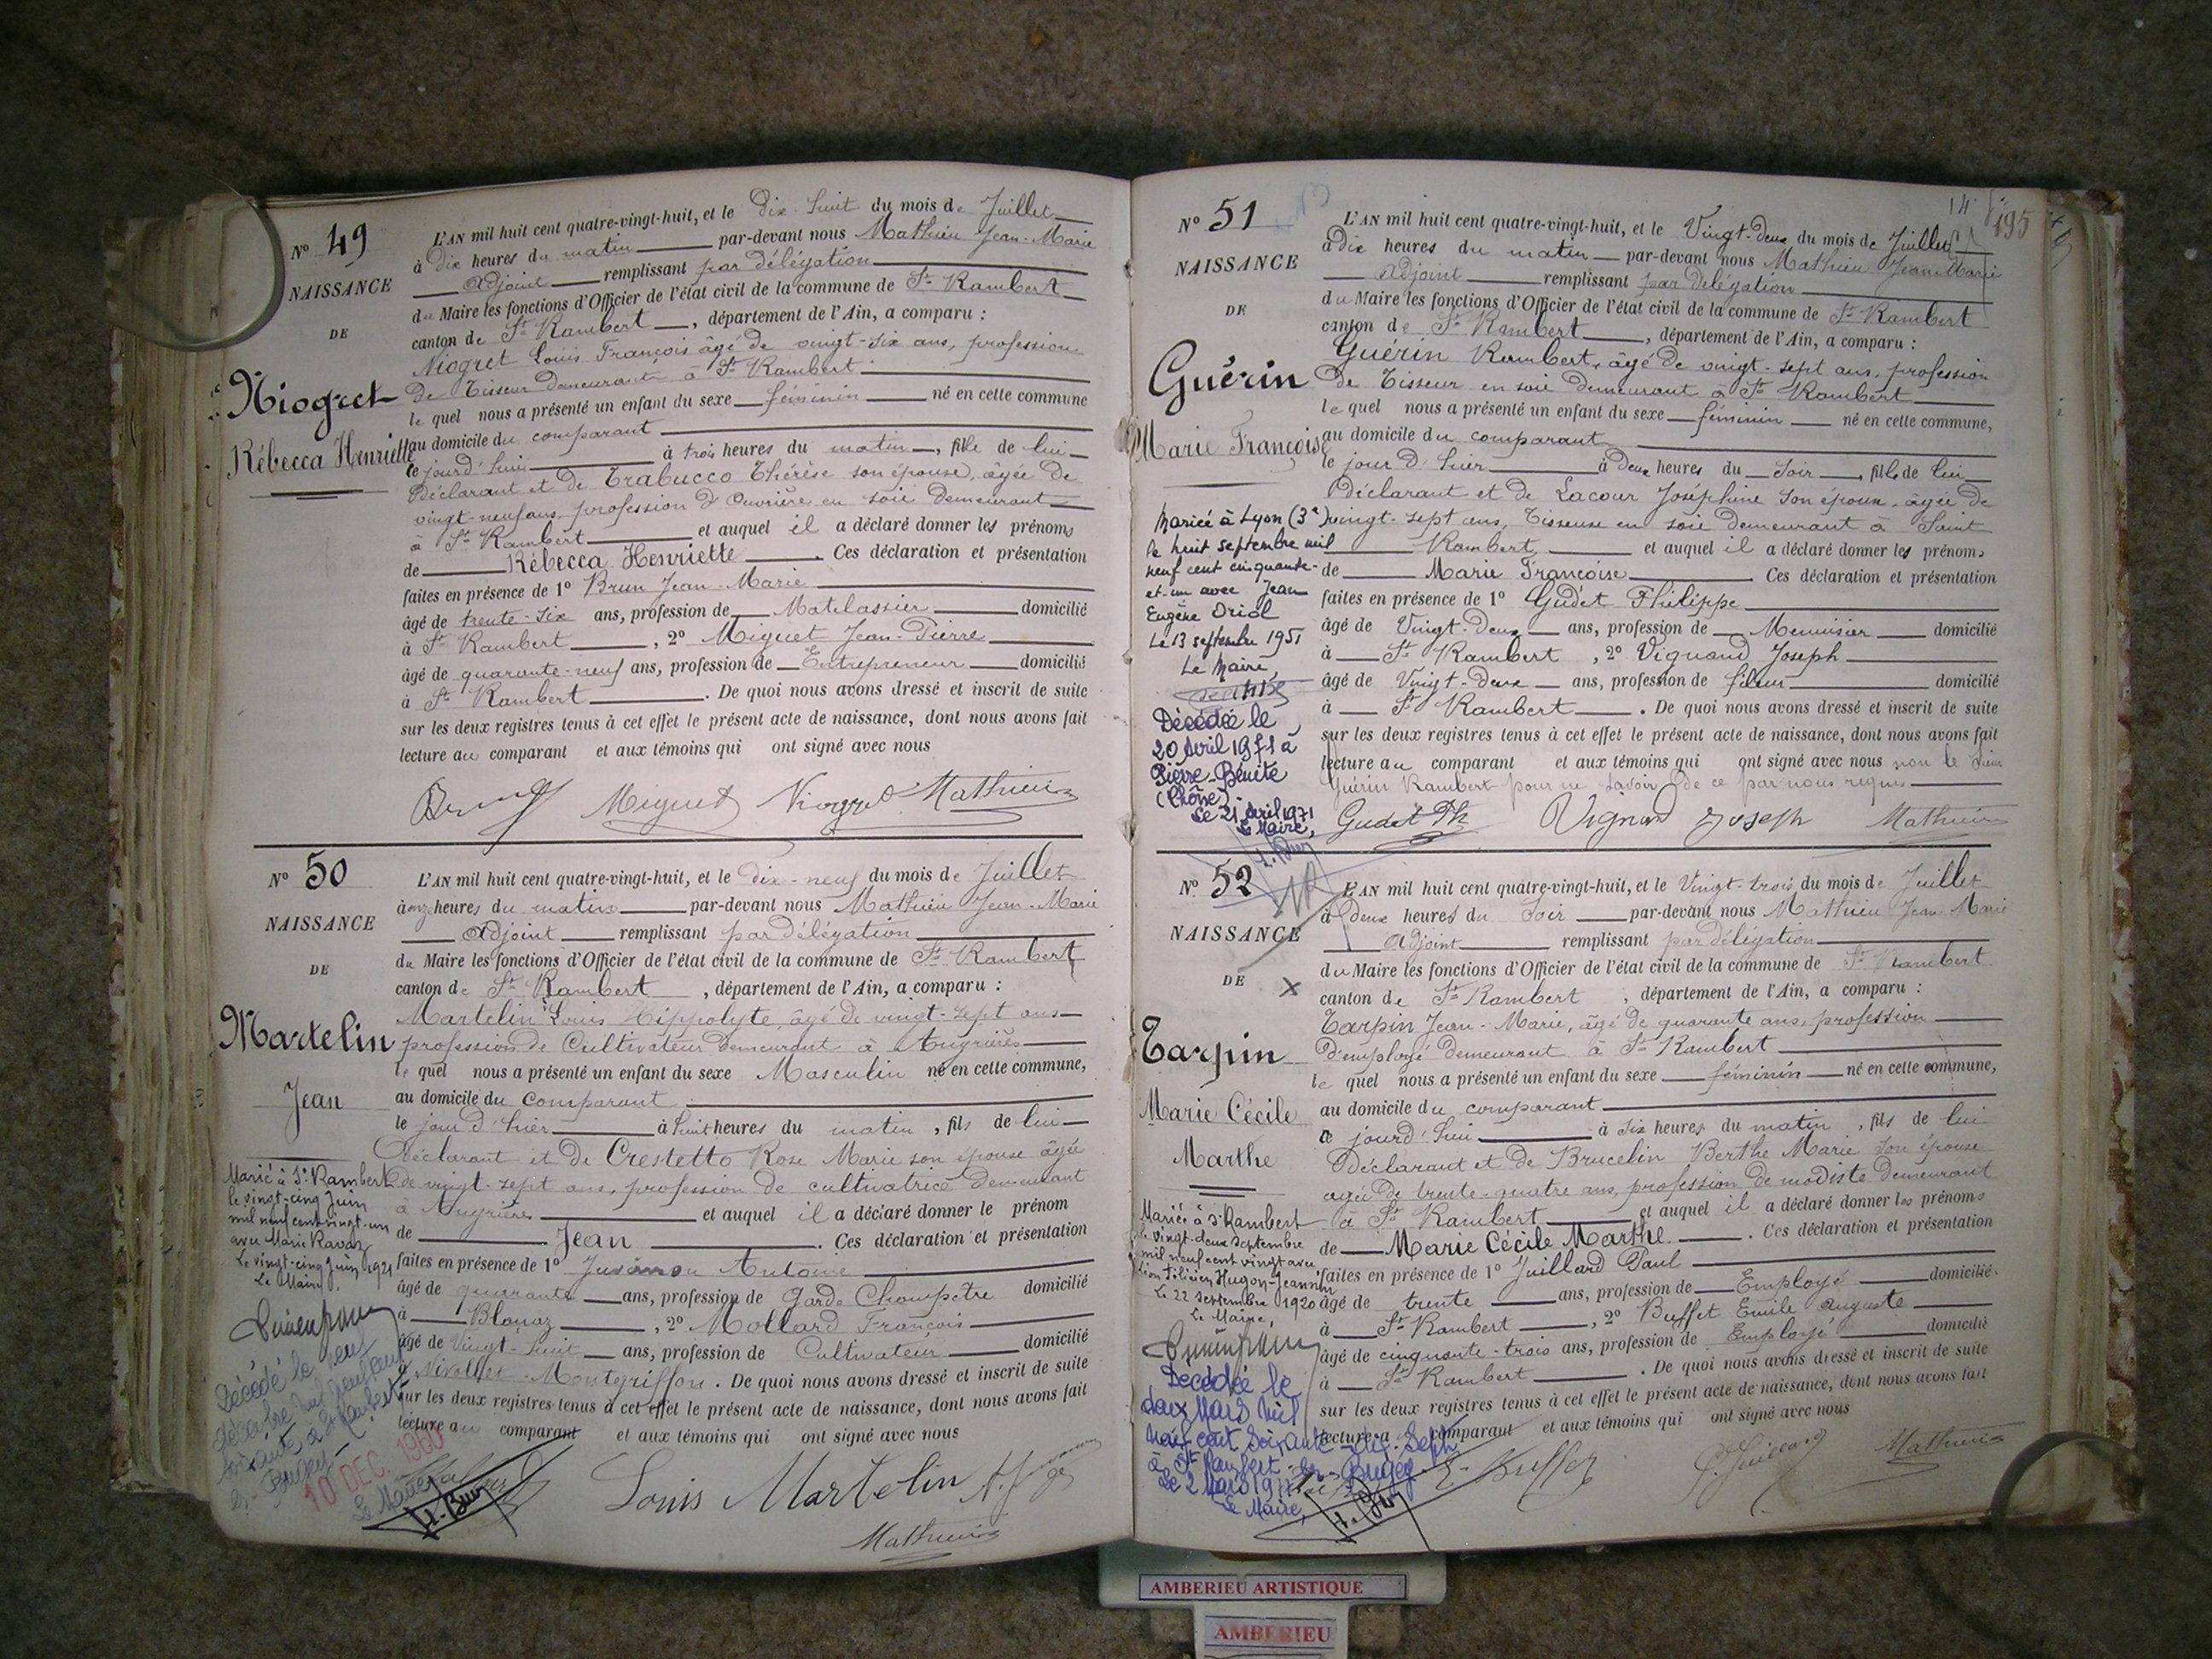 N° 49
NAISSANCE
DE
Niogret
Rébecca Henriette
L'AN mil huit cent quatre-vingt-huit, et le Dix-huit du mois de Juillet
à Dix heures du matin par-devant nous Mathieu Jean-Marie
Adjoint remplissant par délégation
du Maire les fonctions d'Officier de l'état civil de la commune de St Rambert
canton de St Rambert, département de l'Ain, a comparu :
Niogret Louis François âgé de vingt-six ans, profession
de Tisseur demeurant à St Rambert
le quel nous a présenté un enfant du sexe féminin né en cette commune
au domicile du comparant
ce jourd'hui à trois heures du matin, fille de lui
Déclarant et de Trabucco Thérèse son épouse, âgée de
vingt-neuf ans, profession d'Ouvrière en soie demeurant
à St Rambert et auquel il a déclaré donner les prénoms
de Rébecca Henriette. Ces déclaration et présentation
faites en présence de 1° Brun Jean-Marie
âgé de trente-six ans, profession de Matelassier domicilié
à St Rambert, 2° Miguet Jean-Pierre
âgé de quarante-neuf ans, profession de Entrepreneur domicilié
à St Rambert. De quoi nous avons dressé et inscrit de suite
sur les deux registres tenus à cet effet le présent acte de naissance, dont nous avons fait
lecture au comparant et aux témoins qui ont signé avec nous
Brun Miguet Niogret Mathieu
N° 50
NAISSANCE
DE
Martelin
Jean
L'AN mil huit cent quatre-vingt-huit, et le dix-neuf du mois de Juillet
à onze heures du matin par-devant nous Mathieu Jean-Marie
Adjoint remplissant par délégation
du Maire les fonctions d'Officier de l'état civil de la commune de St Rambert
canton de St Rambert, département de l'Ain, a comparu :
Martelin Louis Hippolyte, âgé de vingt-sept ans
profession de Cultivateur demeurant à Angrières
le quel nous a présenté un enfant du sexe Masculin né en cette commune,
au domicile du comparant
le jour d'hier à huit heures du matin, fils de lui
Déclarant et de Crestetto Rose Marie son épouse âgée
de vingt-sept ans, profession de cultivatrice demeurant
à Angrières et auquel il a déclaré donner le prénom
de Jean. Ces déclaration et présentation
faites en présence de 1° Antoine
âgé de quarante ans, profession de Garde Champêtre domicilié
à Blanaz, 2° Mollard François
âgé de Vingt-huit ans, profession de Cultivateur domicilié
à Nivollet-Montgriffon. De quoi nous avons dressé et inscrit de suite
sur les deux registres tenus à cet effet le présent acte de naissance, dont nous avons fait
lecture au comparant et aux témoins qui ont signé avec nous
Louis Martelin
Mathieu
Marié à St Rambert
le vingt-cinq Juin
mil neuf cent vingt-un
avec Marie Ravaz
Le vingt-cinq Juin 1921
Le Maire,
Décédé le neuf
décembre mil neuf cent
soixante à St Rambert-
en-Bugey
10 DEC. 1960
Le Maire
N° 51
NAISSANCE
DE
Guérin
Marie Françoise
195
L'AN mil huit cent quatre-vingt-huit, et le Vingt-deux du mois de Juillet
à dix heures du matin par-devant nous Mathieu Jean-Marie
Adjoint remplissant par délégation
du Maire les fonctions d'Officier de l'état civil de la commune de St Rambert
canton de St Rambert, département de l'Ain, a comparu :
Guérin Rambert, âgé de vingt-sept ans, profession
de Tisseur en soie demeurant à St Rambert
le quel nous a présenté un enfant du sexe féminin né en cette commune,
au domicile du comparant
le jour d'hier à deux heures du Soir, fille de lui
Déclarant et de Lacour Joséphine son épouse, âgée de
vingt-sept ans, Tisseuse en soie demeurant à Saint
Rambert et auquel il a déclaré donner les prénoms
de Marie Françoise. Ces déclaration et présentation
faites en présence de 1° Gudet Philippe
âgé de Vingt-Deux ans, profession de Menuisier domicilié
à St Rambert, 2° Vignand Joseph
âgé de Vingt-Deux ans, profession de fileur domicilié
à St Rambert. De quoi nous avons dressé et inscrit de suite
sur les deux registres tenus à cet effet le présent acte de naissance, dont nous avons fait
lecture au comparant et aux témoins qui ont signé avec nous non le sieur
Guérin Rambert pour ne savoir de ce par nous requis
Gudet Ph Vignand Joseph Mathieu
Mariée à Lyon (3e)
le huit septembre mil
neuf cent cinquante-
et-un avec Jean
Eugène Oriol
Le 13 septembre 1951
Le Maire
Décédée le
20 Avril 1971 à
Pierre-Bénite
(Rhône)
Le 21 Avril 1971
Le Maire,
N° 52
NAISSANCE
DE
Tarpin
Marie Cécile
Marthe
L'AN mil huit cent quatre-vingt-huit, et le Vingt-trois du mois de Juillet
à deux heures du Soir par-devant nous Mathieu Jean-Marie
Adjoint remplissant par délégation
du Maire les fonctions d'Officier de l'état civil de la commune de St Rambert
canton de St Rambert, département de l'Ain, a comparu :
Tarpin Jean-Marie, âgé de quarante ans, profession
d'employé demeurant à St Rambert
le quel nous a présenté un enfant du sexe féminin né en cette commune,
au domicile du comparant
ce jourd'hui à six heures du matin, fils de lui
Déclarant et de Brucelin Berthe Marie son épouse
agée de trente-quatre ans, profession de modiste demeurant
à St Rambert et auquel il a déclaré donner les prénoms
de Marie Cécile Marthe. Ces déclaration et présentation
faites en présence de 1° Juillard Paul
âgé de trente ans, profession de Employé domicilié
à St Rambert, 2° Buffet Emile Auguste
âgé de cinquante-trois ans, profession de Employé domicilié
à St Rambert. De quoi nous avons dressé et inscrit de suite
sur les deux registres tenus à cet effet le présent acte de naissance, dont nous avons fait
lecture a comparant et aux témoins qui ont signé avec nous
E. Buffet P. Juillard Mathieu
Mariée à St Rambert
le vingt-deux septembre
mil neuf cent vingt avec
Hugon-Jeannin
Le 22 septembre 1920
Le Maire,
Décédée le
deux Mars mil
neuf cent soixante-dix-sept
à St Rambert-en-Bugey
Le 2 Mars 1977
Le Maire,
AMBERIEU ARTISTIQUE
AMBERIEU